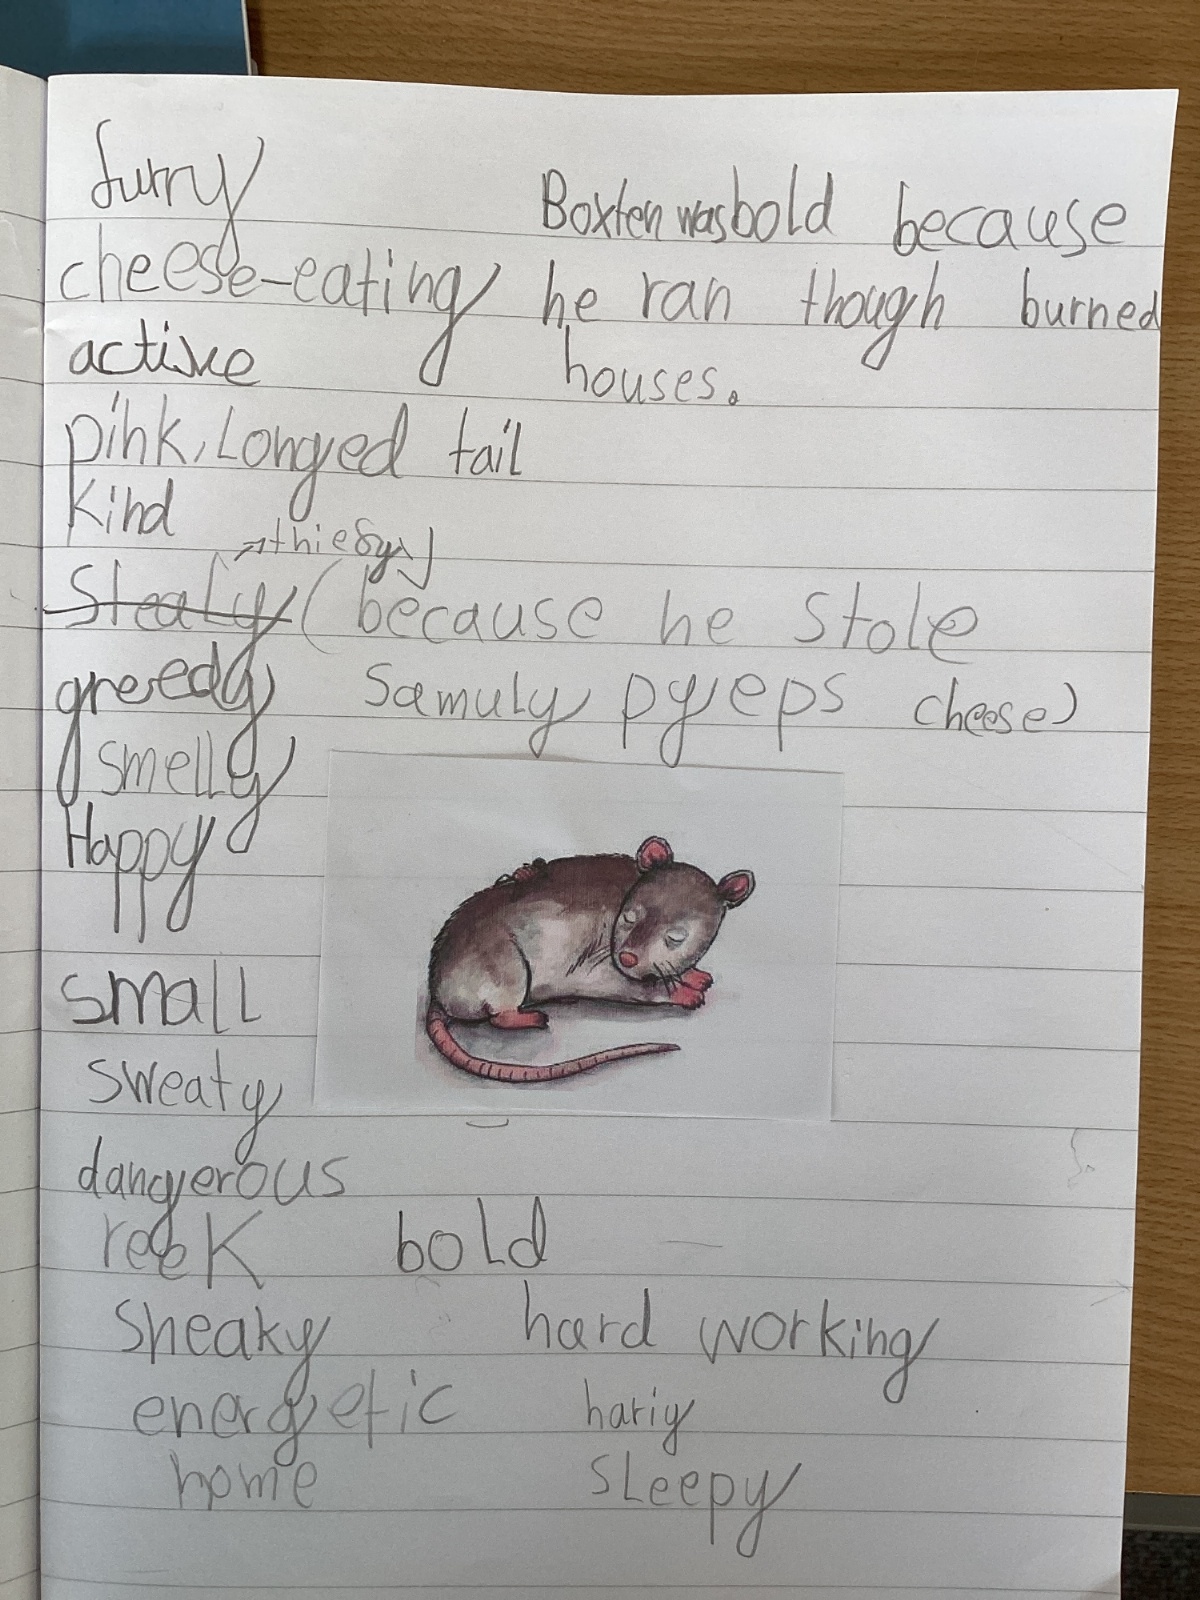 furry
Boxten was bold because
cheese-eating
he ran though burned
active
houses.
pink, Longed tail
Kind
thiefy
Stealy (because he stole
greedy
Samuly pyeps cheese)
smelly
Happy
small
sweaty
dangerous
reeK
bold
Sneaky
hard working
energetic
hariy
home
SLeepy